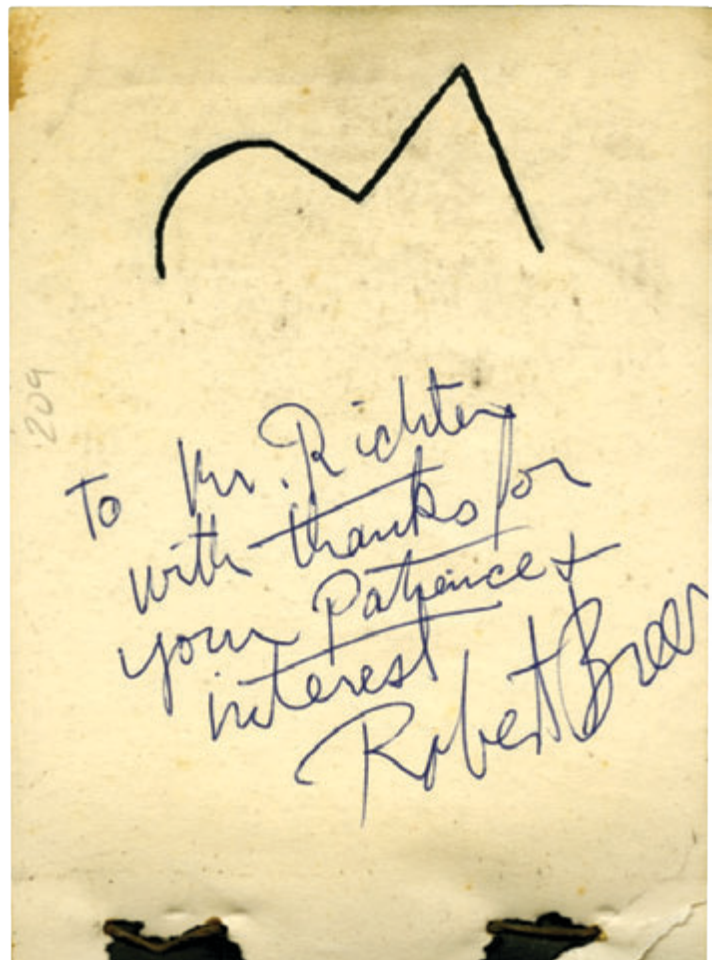 209
To Mr. Richter
with thanks for
your Patience +
interest
Robert Breer